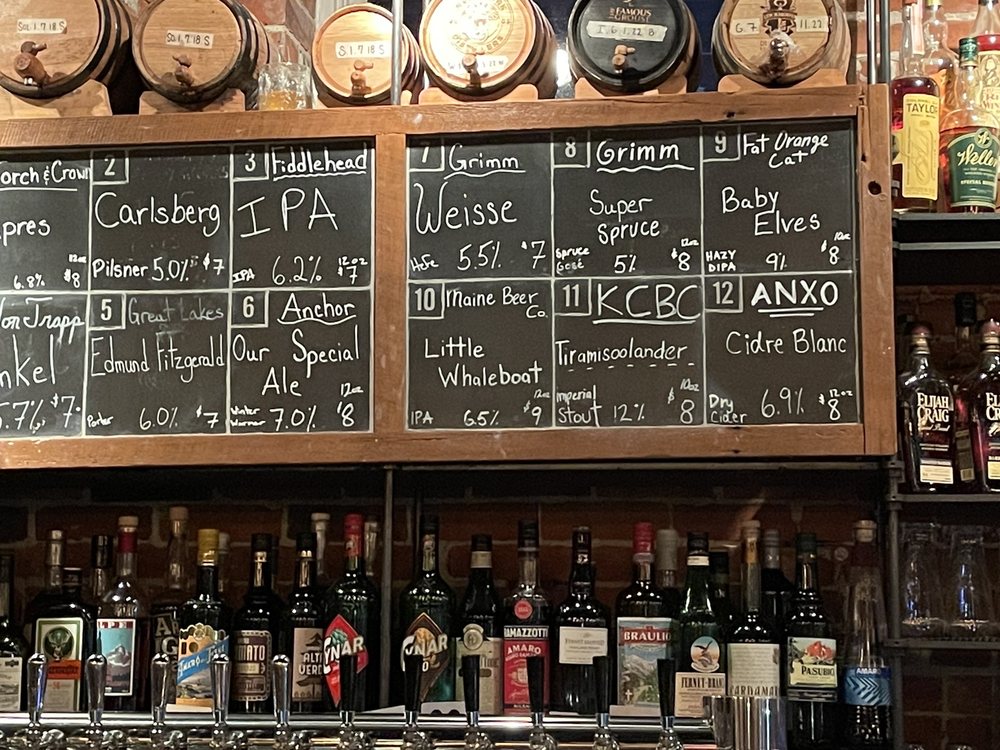 SOL 1.7.18 S
SO.1.7.18 S
S0 1.7.18 S
FAMOUS
GROUSE
I.6.1.22 B
G.7
11.22
TAYLOR
Weller
orch & Crown
pres
6.8% 12oz $8
2
Carlsberg
Pilsner 5.0% $7
3 Fiddlehead
IPA
IPA 6.2% 12oz $7
Von Trapp
nkel
5.7% $7
5 Great Lakes
Edmund Fitzgerald
Porter 6.0% $7
6 Anchor
Our Special
Ale
Winter
Warmer 7.0% 12oz $8
7 Grimm
Weisse
Hefe 5.5% $7
8 Grimm
Super
Spruce
Spruce
Gose 5% 12oz $8
9 Fat Orange
Cat
Baby
Elves
HAZY
DIPA 9% 10oz $8
10 Maine Beer
Co.
Little
Whaleboat
IPA 6.5% 12oz $9
11 KCBC
Tiramisoolander
Imperial
Stout 12% 10oz $8
12 ANXO
Cidre Blanc
Dry
Cider 6.9% 12oz $8
ELIJAH
CRAIG
ALTA
VERDE
CYNAR
CYNAR
RAMAZZOTTI
AMARO
FERNET
BRAULIO
FERNET-BRANCA
CARDAMARO
PASUBIO
AMARO